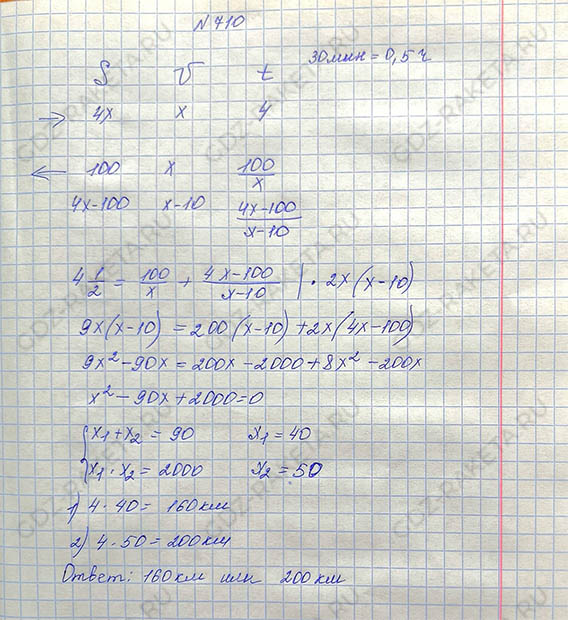 N 710
30мин = 0,5 ч
S v t
→ 4x x 4
← 100 x 100/x
4x-100 x-10 (4x-100)/(x-10)
4 1/2 = 100/x + (4x-100)/(x-10) | · 2x(x-10)
9x(x-10) = 200(x-10)+2x(4x-100)
9x²-90x=200x-2000+8x²-200x
x²-90x+2000=0
{x₁+x₂ = 90 x₁=40
{x₁·x₂=2000 x₂=50
1) 4·40= 160км
2) 4·50=200км
Ответ: 160км или 200км
GDZ-RAKETA.RU